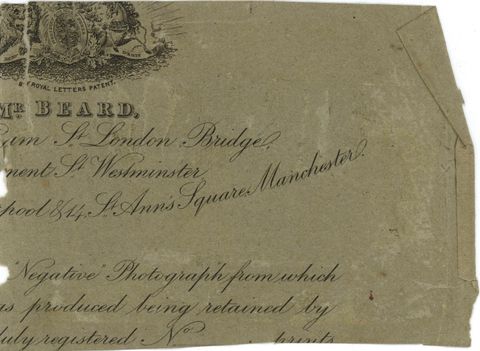 BY ROYAL LETTERS PATENT.
MR BEARD,
St London Bridge,
St Westminster,
pool & 14, St Ann's Square Manchester.
"Negative" Photograph from which
as produced being retained by
duly registered No prints